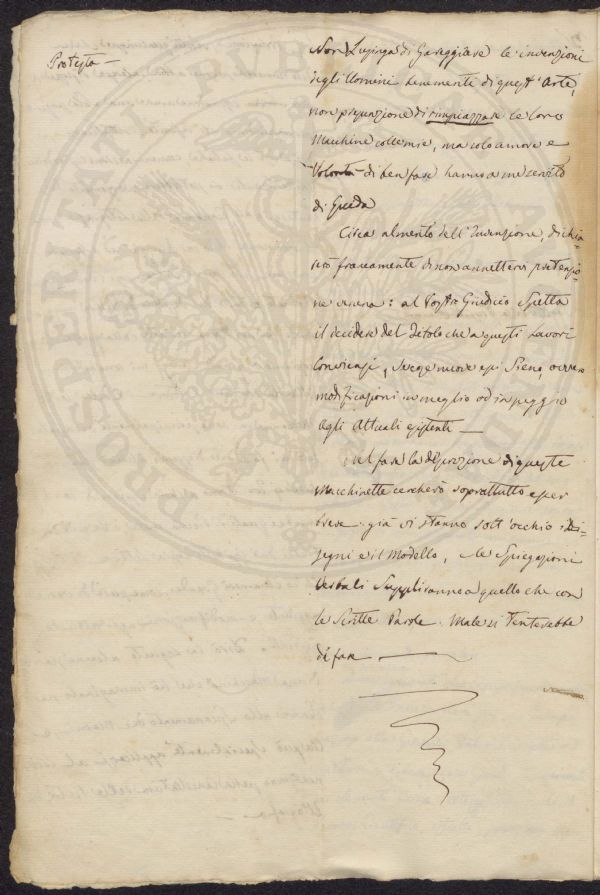 Protesta —
Non Lusinga di Gareggiare le invenzioni
degli Uomini benemeriti di quest'Arte,
non presunzione di rimpiazzare le loro
Macchine colle mie, ma solo amore e
Volontà di ben fare hanno a me servito
di Guida
Circa al merito dell'Invenzione, dichia-
rerò francamente di non annettervi pretensio-
ne veruna: al Vostro Giudizio Spetta
il decidere del Titolo che a questi Lavori
Convengasi, se cose nuove essi Sieno, ovvero
modificazioni in meglio od in peggio
agli Attuali esistenti —
Nel fare la descrizione di queste
Macchinette cercherò soprattutto esser
breve. già vi stanno sott'occhio i Di-
segni e il Modello, e le Spiegazioni
Verbali Suppliranno a quello che con
le Scritte Parole Male si Tenterebbe
di fare —
PROSPERITATI PUBL